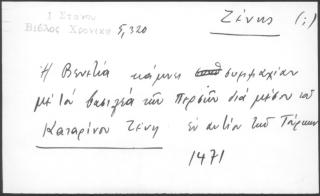 Ι Στανου
Βιβλος Χρονικα 5,320
Ζένης (;)
Ἡ Βενετία κάμνει συμμαχίαν
μὲ τὸν βασιλέα τῶν Περσῶν διὰ μέσου τοῦ
Καταρίνου Ζένη ἐναντίον τῶν Τούρκων
1471